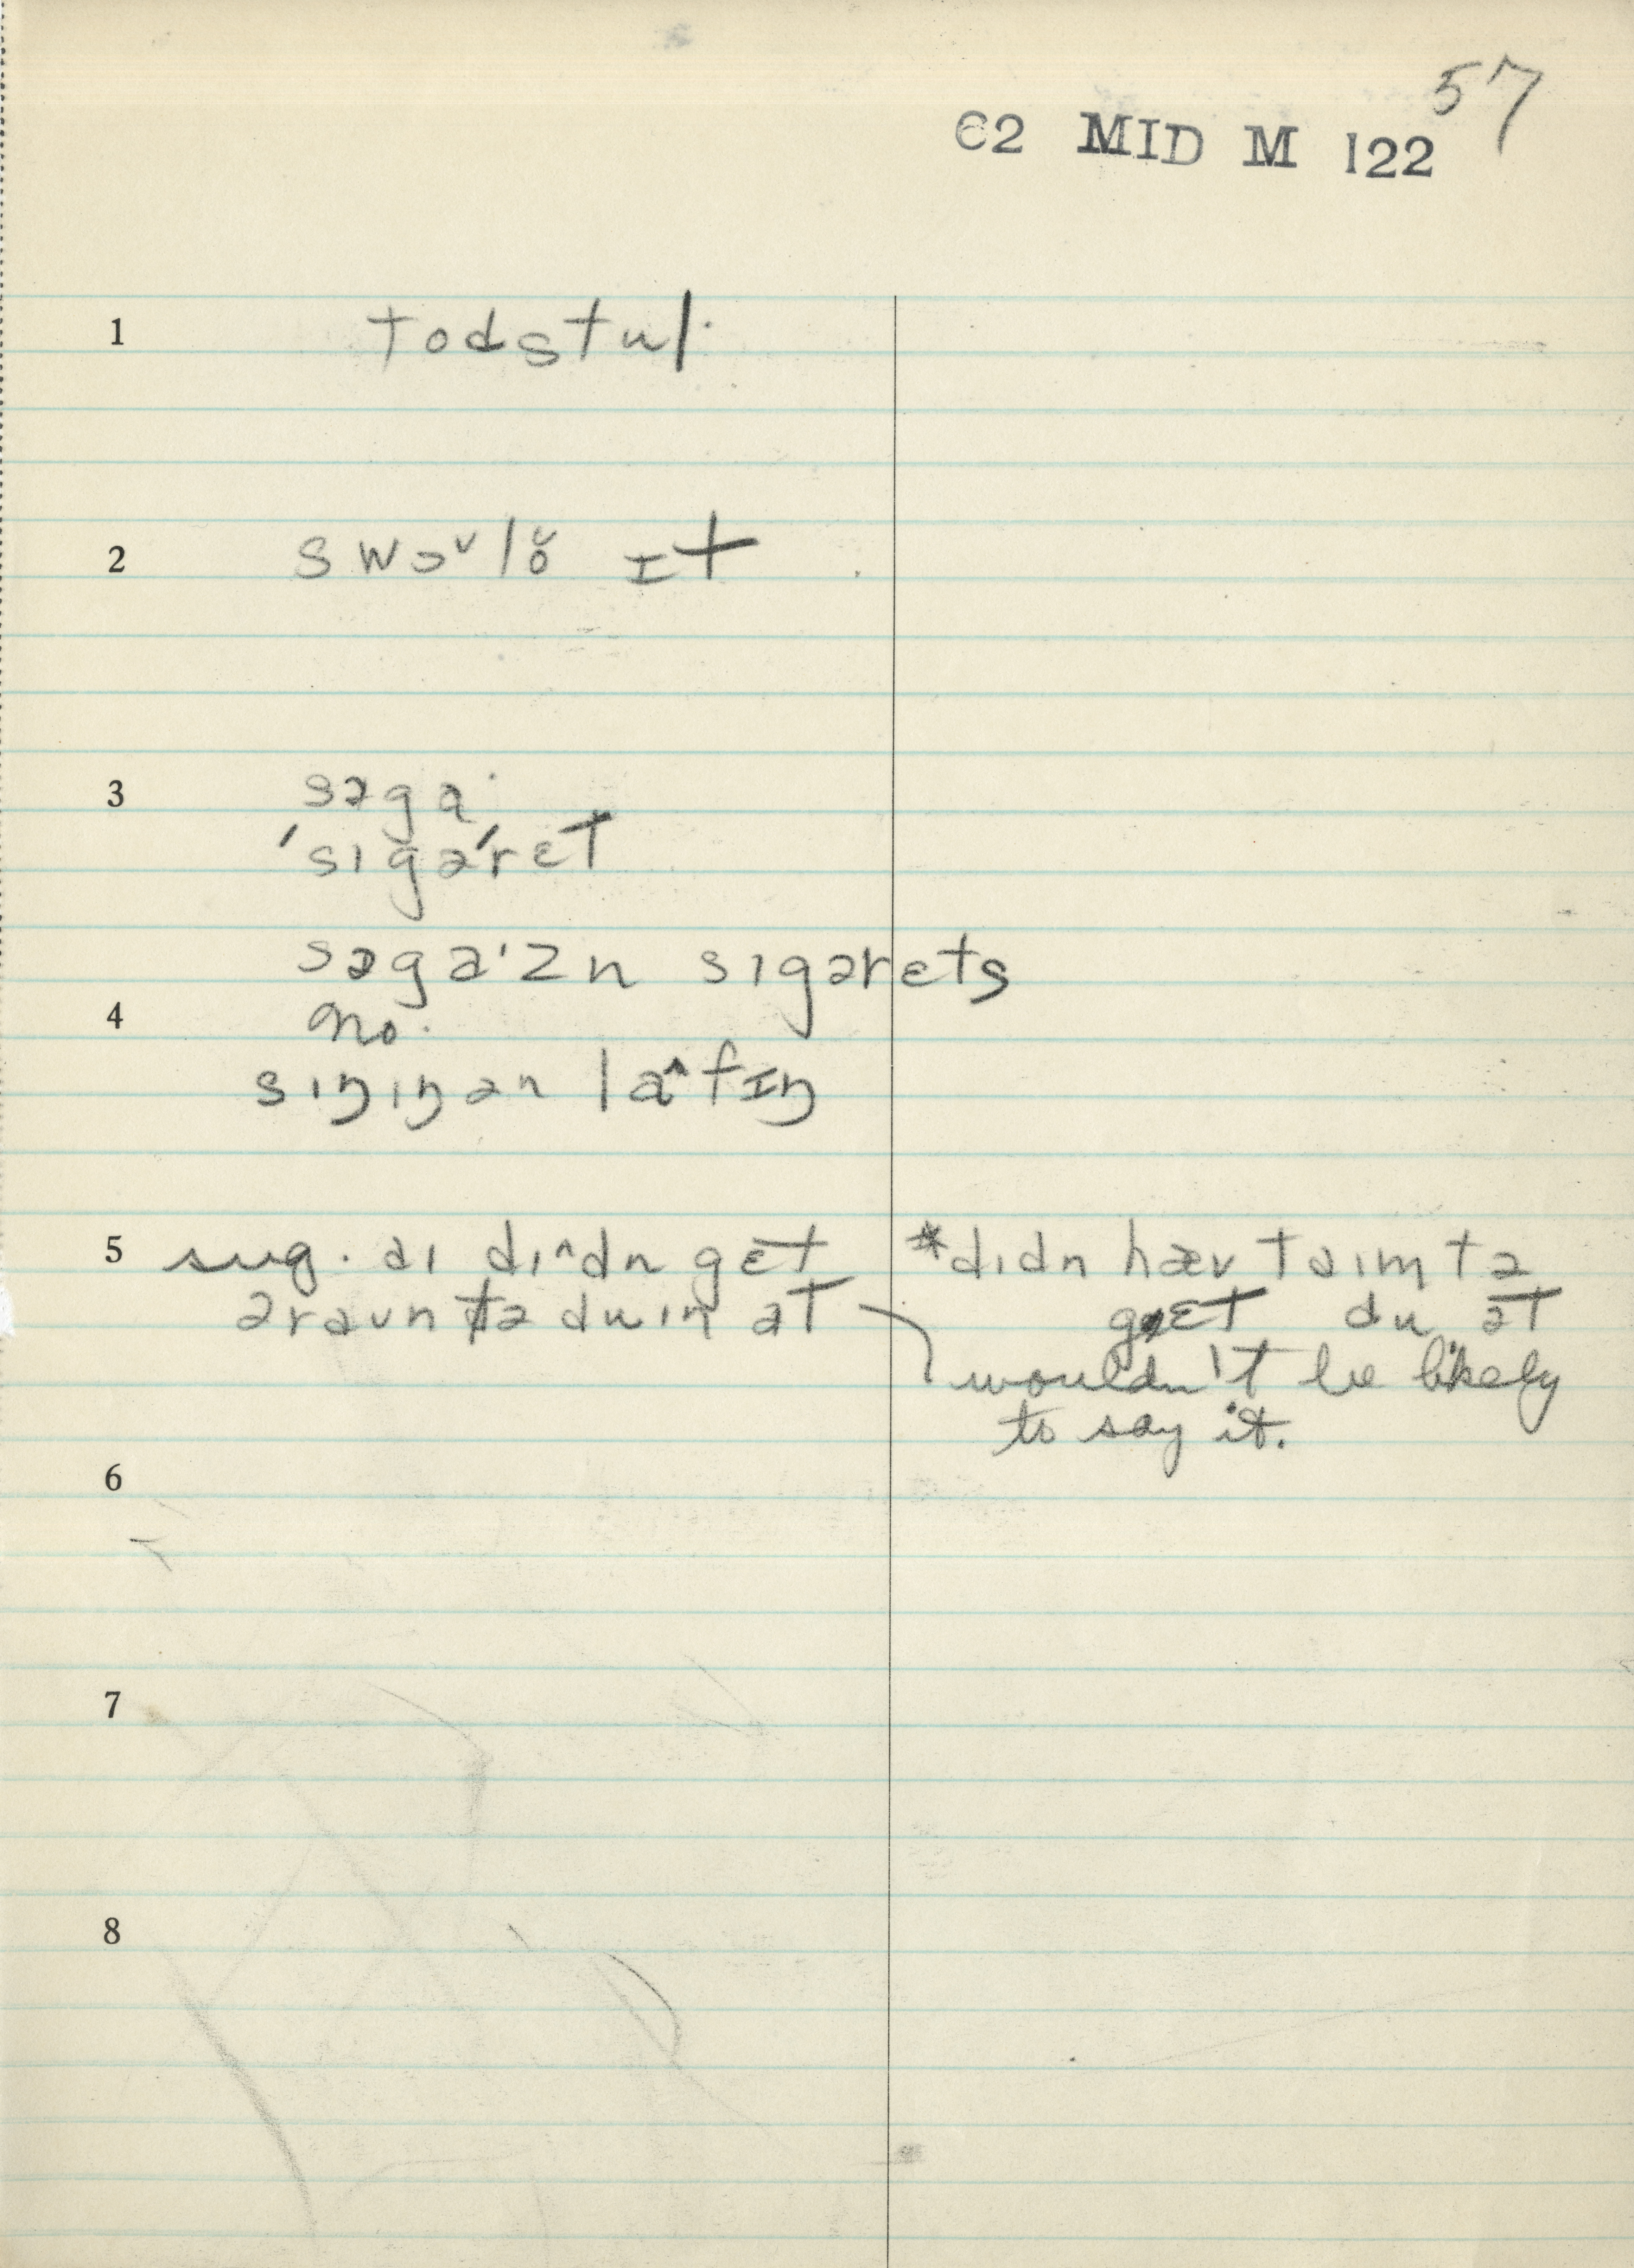 57
62 MID M 122
1 todstul·
2 swɔᵛlŏ ɪt
3 səga·
ˈsigəˈrɛt
səga·zn sigərɛts
4 no·
siŋiŋən la^fɪŋ
5 sug. aɪ dı^dn gɛt
əraʊn tə duɪn ət
*dɪdn hæv taɪm tə
gɛt du ət
wouldn't be likely
to say it.
6
7
8